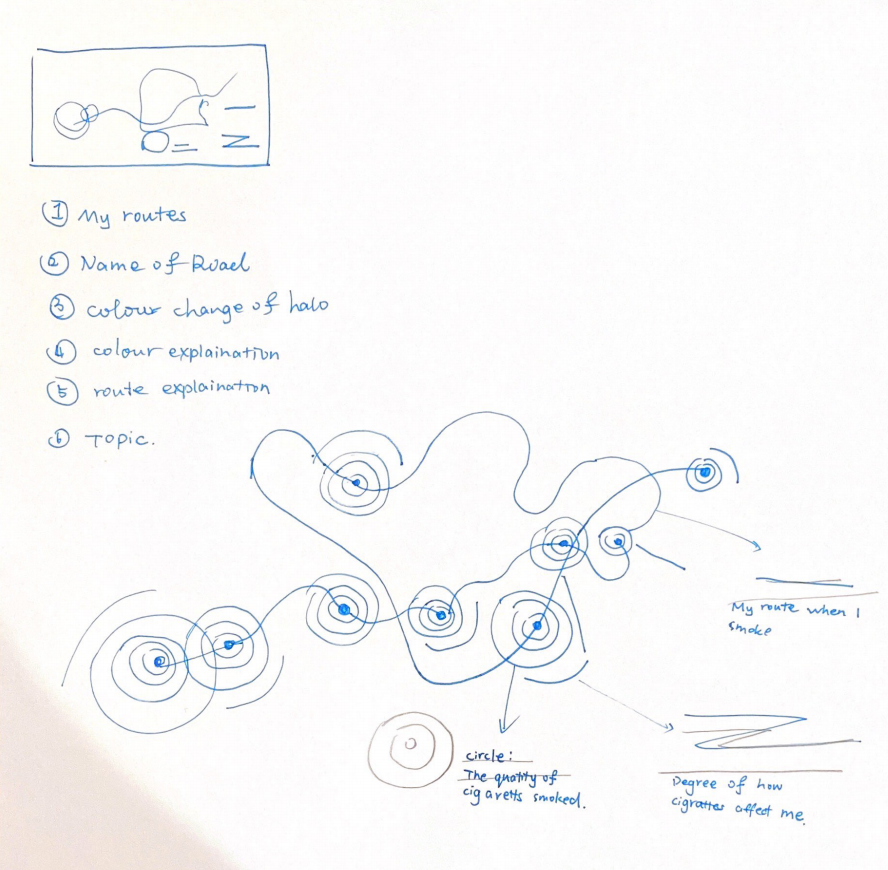 ① My routes
② Name of Road
③ colour change of halo
④ colour explaination
⑤ route explaination
⑥ Topic.
My route when I
smoke
circle:
The quatity of
cigaretts smoked.
Degree of how
cigrattes affect me.